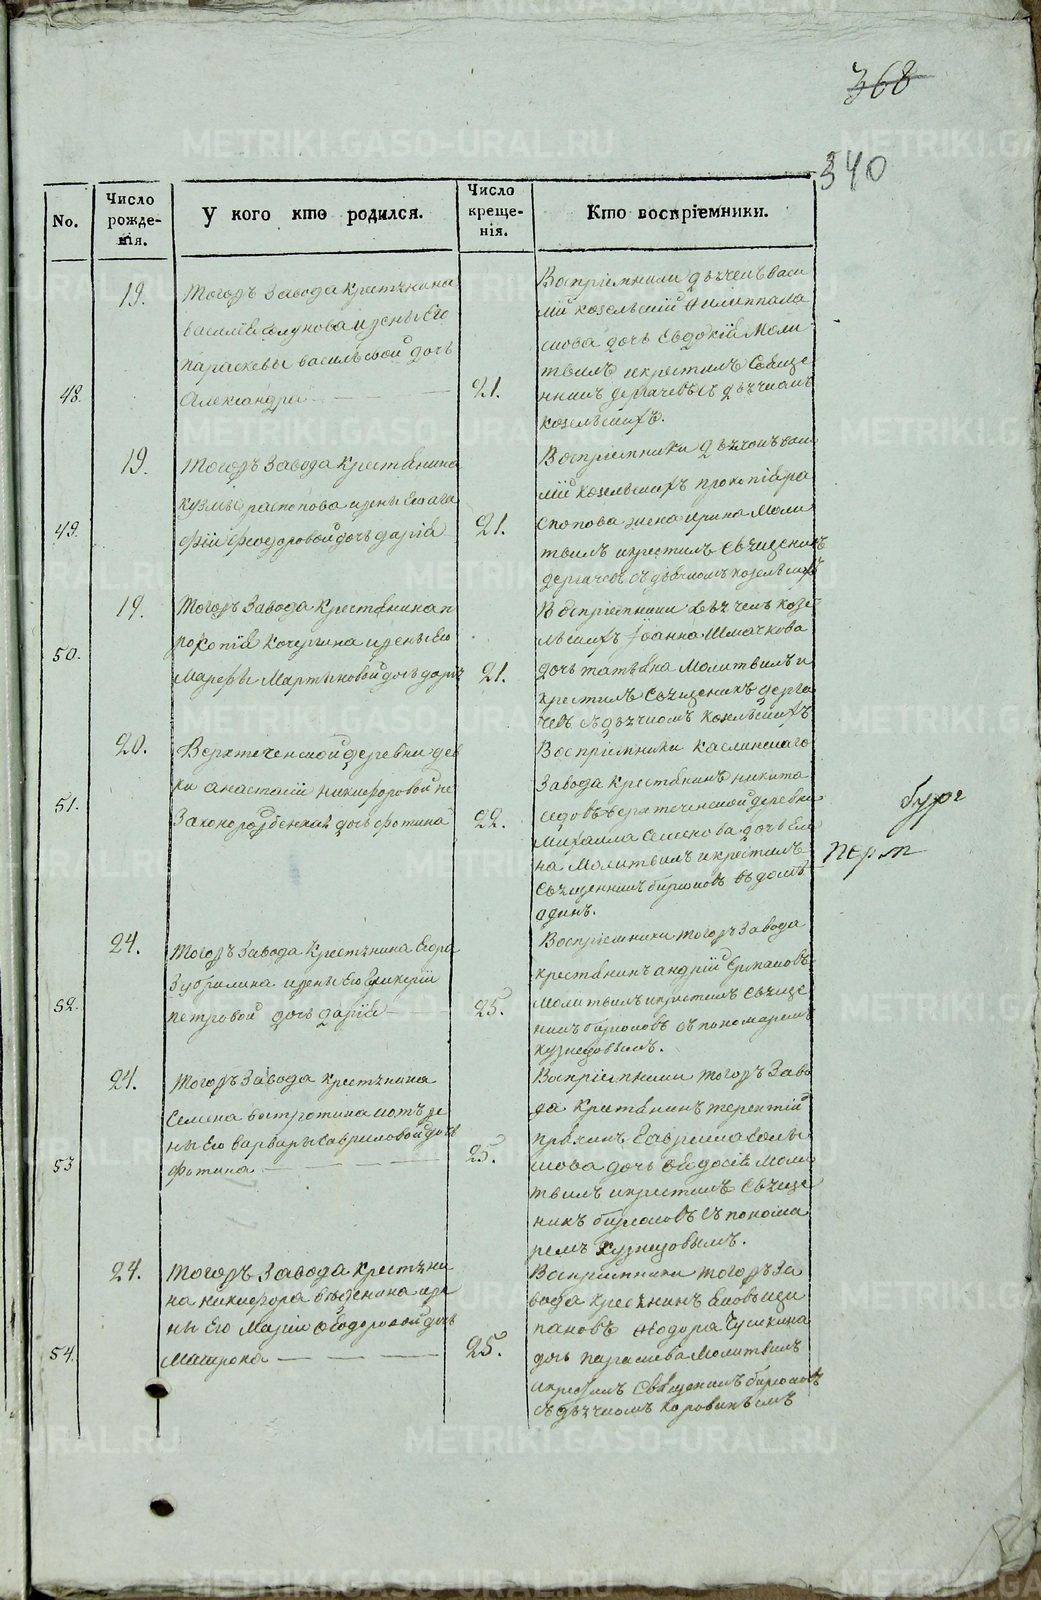 368
340
No.
Число рожде-нія.
У кого кто родился.
Число креще-нія.
Кто воспріемники.
48.
19.
Тогожъ Завода Крестьянина
василія
жены Его
параскевы васильевой дочь
Александра
21.
Воспріемники дьячекъ васи
лій козельскій Филиппа
дочь Евдокія Моли
твилъ и крестилъ Священ
никъ дергачевъ съ дьячкомъ
козельскимъ.
49.
19.
Тогожъ Завода Крестьянина
кузмы распопова и жены Его ага
фіи феодоровой дочь дарія
21.
Воспріемники дьячекъ васи
лій козельскихъ прокопія ра
спопова жена ирина Моли
твилъ и крестилъ Священникъ
дергачевъ съ дьячкомъ козельскихъ
50.
19.
Тогожъ Завода Крестьянина п
рокопія Кочергина и жены Его
Марфы Мартыновой дочь дарія
21.
Воспріемники дьячекъ козе
льскихъ Іоанна Шмачкова
дочь татьяна Молитвилъ и
крестилъ Священникъ дерга
чевъ съ дьячкомъ козельскихъ
51.
20.
Верхтеченской деревни дев
ки анастасіи никифоровой не
Законорожденная дочь фотина
22.
Воспріемники каслинскаго
Завода Крестьянинъ никита
седовъ верхтеченской деревни
михаила Семенова дочь Еле
на Молитвилъ и крестилъ
Священникъ бирюковъ въ доме
одинъ.
52.
24.
Тогожъ Завода Крестьянина Егора
Зубрилина и жены Его Гликеріи
петровой дочь дарія
25.
Воспріемники тогожъ Завода
крестьянинъ андрій Ермаковъ
Молитвилъ и крестилъ Священ
никъ бирюковъ съ пономаремъ
кузнецовымъ.
53
24.
Тогожъ Завода крестьянина
Семена востротина и отъ же
ны Его варвары гавриловой дочь
Фотина
25.
Воспріемники тогожъ Заво
да крестьянинъ терентій
пряхинъ Гавриила
дочь Ѳедосія Моли
твилъ и крестилъ Священ
никъ бирюковъ съ понома
ремъ Кузнецовымъ.
54.
24.
Тогожъ Завода крестьяни
на никифора
и же
ны Его Маріи Ѳеодоровой дочь
Матрона
25.
Воспріемники тогожъ За
вода крестьянинъ
Ѳеодора Чусикина
дочь параскева Молитвилъ
и крестилъ Священникъ бирюковъ
съ дьячкомъ коровинымъ
METRIKI.GASO-URAL.RU